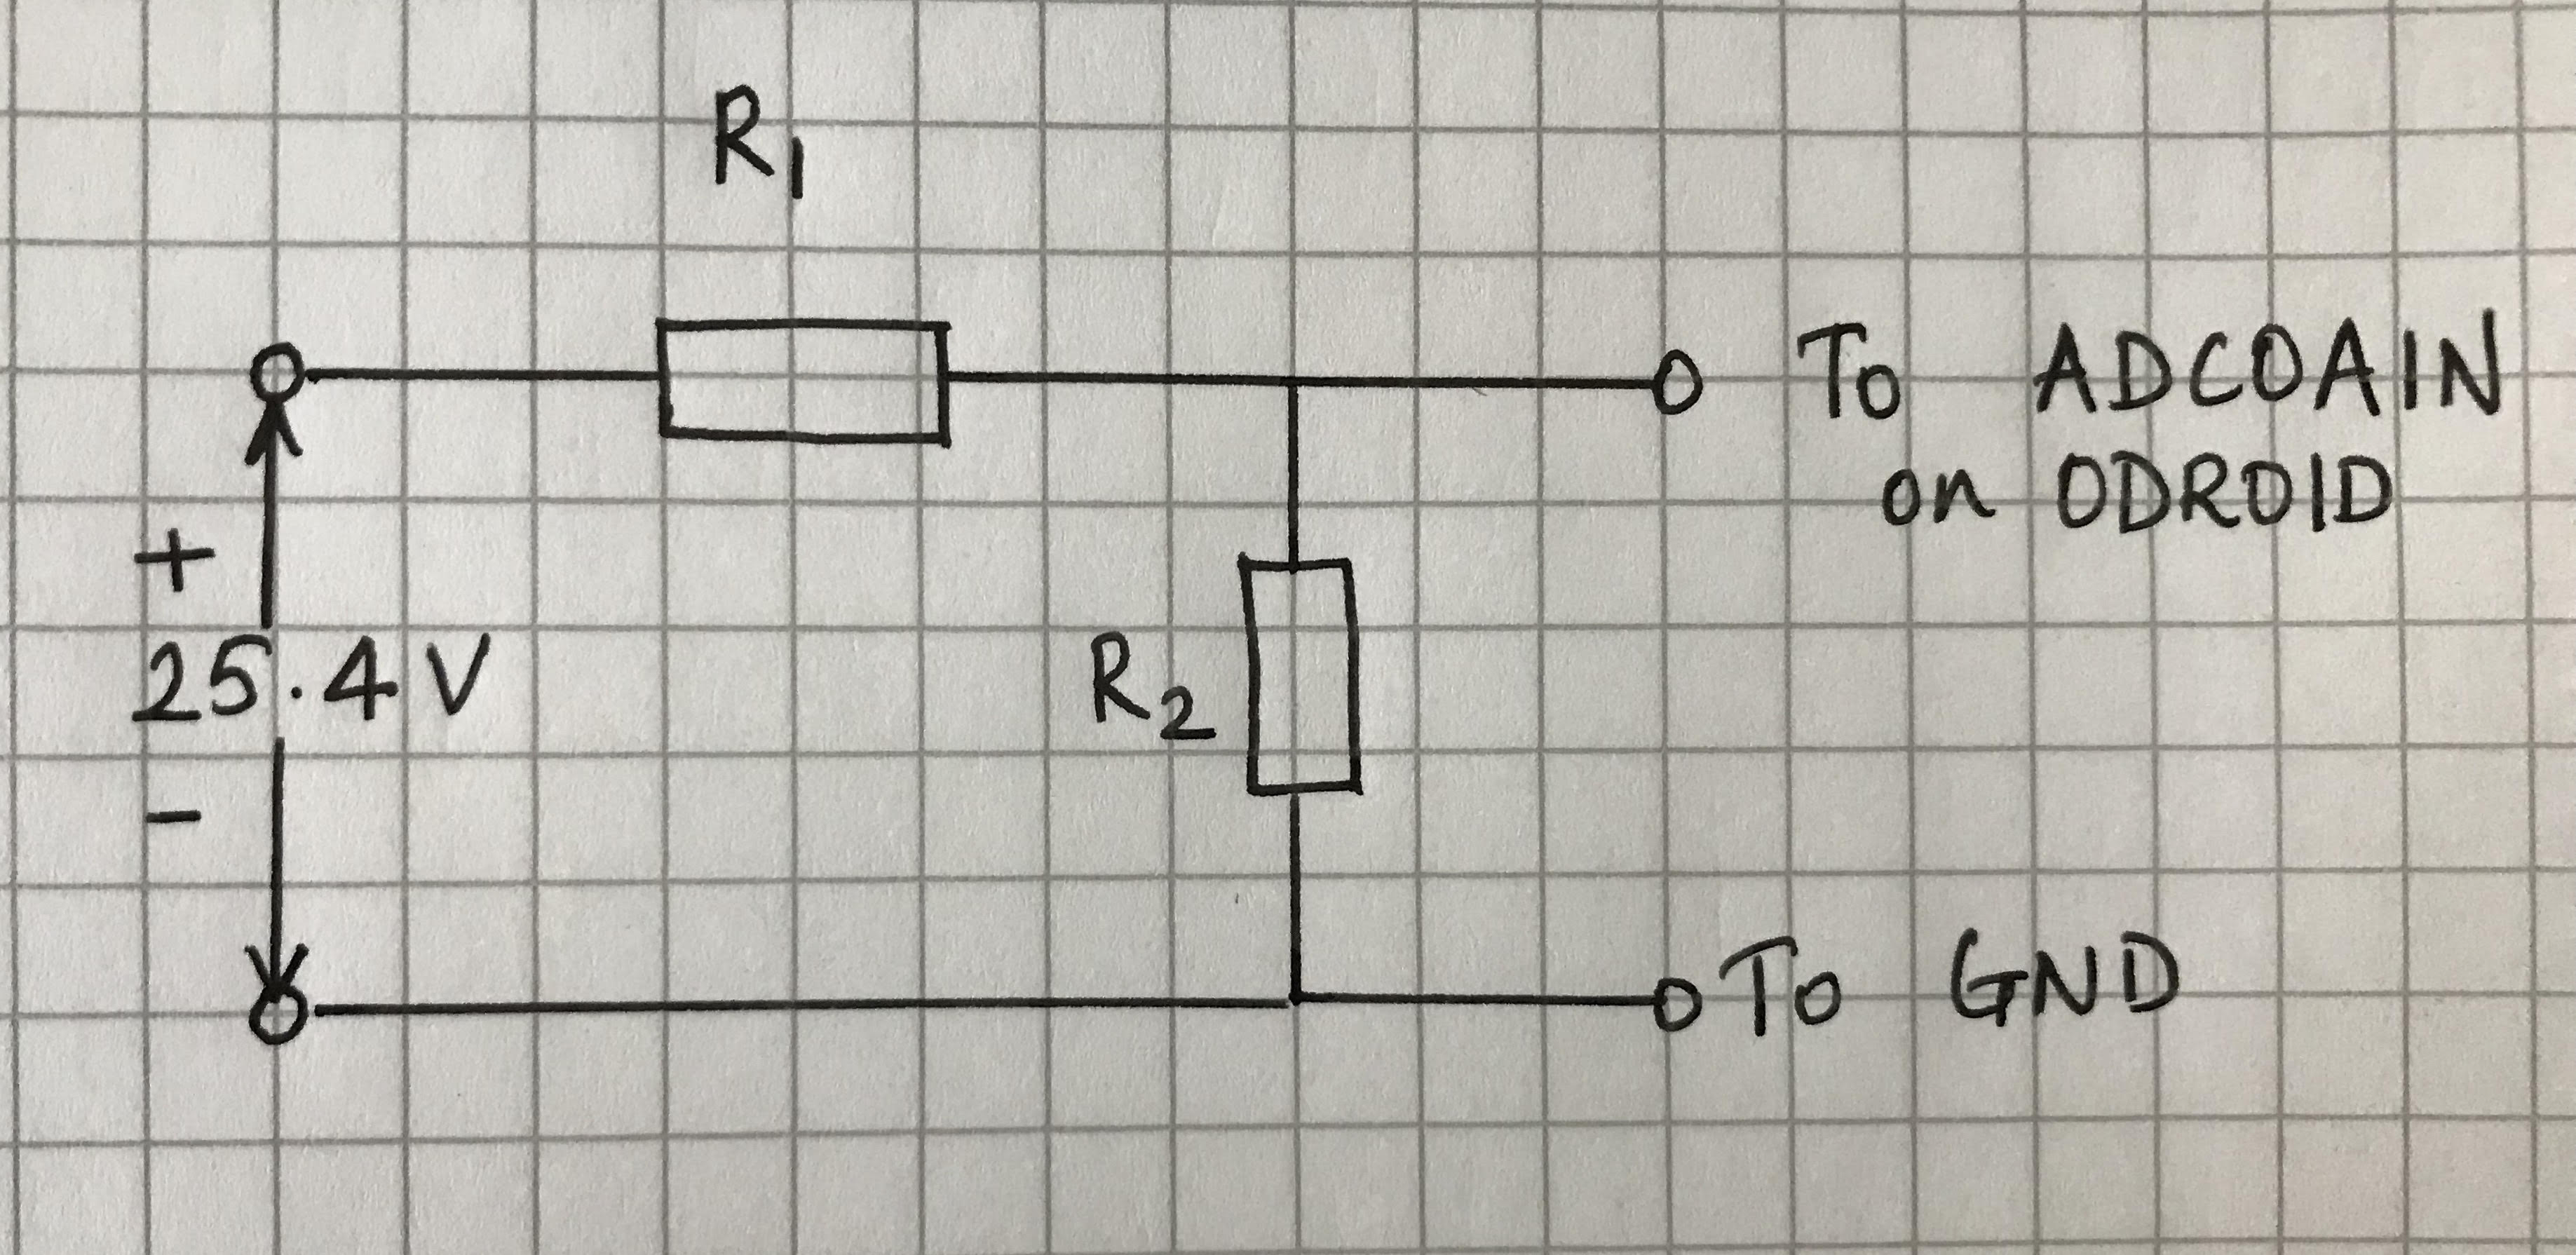 R1
To ADC0AIN
on ODROID
+
25.4V
R2
-
To GND